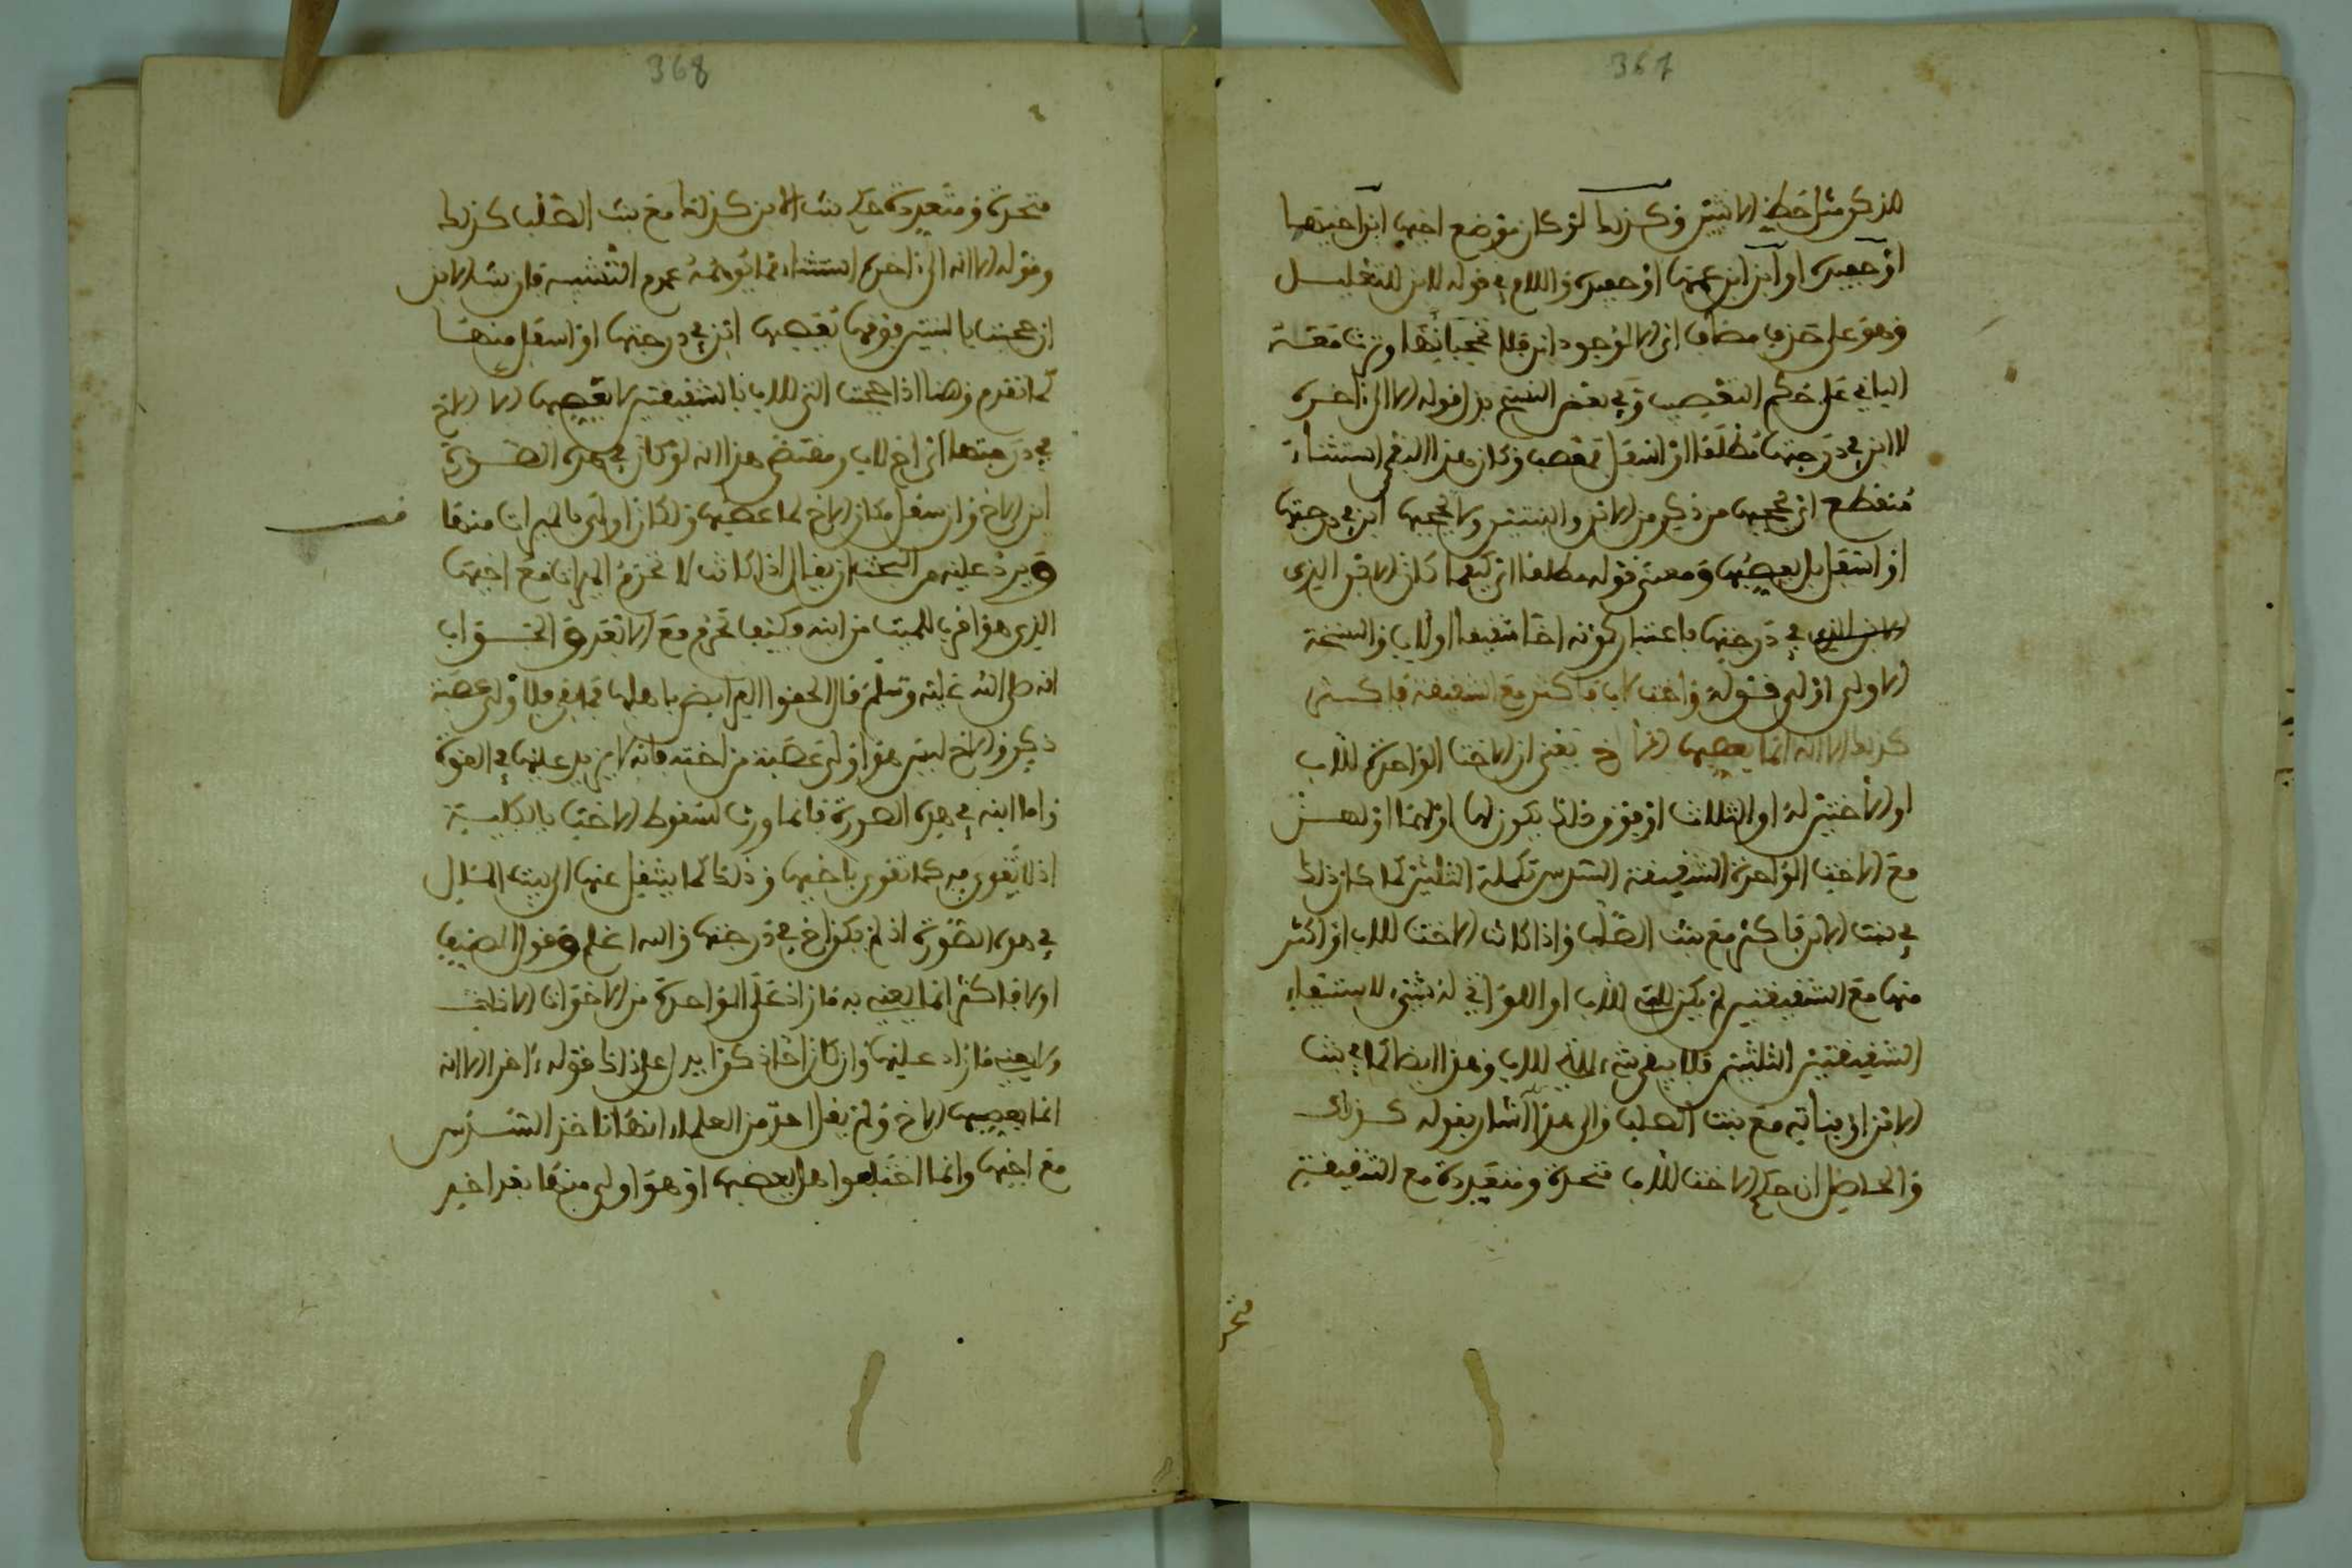 367
للذكر مثل حظ الانثيين وكذلك لو كان موضع اخيها ابن اخيها
او حفيده او ابن ابن عمها او حفيده واللام في قوله لابن للتعليل
وهو على حذف مضاف اي الا لوجود ابن فلا تحجبانها وترث معه
الباقي على حكم التعصيب وفي بعض النسخ بدل قوله الا الى اخره
لا ابن في درجتها مطلقا او اسفل فمعصب وكان هذا النفي استثناء
منقطع اي تحجبها من ذكر من الابن والبنتين ولا يحجبها ابن في درجتها
او اسفل بل يعصبها ومعنى قوله مطلقا اي كيفما كان الابن الذي
في درجتها باعتبار كونه اخا شقيقا او لاب والنسخة
الاولى اولى قوله واخت لاب فاكثر مع الشقيقة فاكثر
كذلك الا انه انما يعصبها الاخ يعني ان الاخت الواحدة للاب
او الاختين له او الثلاث او فوق ذلك يكون لها او لهما او لهن
مع الاخت الواحدة الشقيقة السدس تكملة الثلثين كما كان ذلك
في بنت الابن فاكثر مع بنت الصلب واذا كانت الاخت للاب او اكثر
منها مع الشقيقتين لم يكن للتي للاب او اللواتي له شيء لاستيفاء
الشقيقتين الثلثين فلا يبقى شيء للتي للاب وهذا ايضا كما في بنت
الابن او بناته مع بنت الصلب والى هذا اشار بقوله كذلك
والحاصل ان حكم الاخت للاب متحدة ومتعددة مع الشقيقة
متحد
368
متحدة ومتعددة حكم بنت الابن كذلك مع بنت الصلب كذلك
وقوله الا انه الى اخره استثناء مما يوهمه عموم التشبيه فان بنت الابن
ان حجبت بالبنتين فوقها يعصبها ابن في درجتها او اسفل منها
كما تقدم وهنا اذا حجبت التي للاب بالشقيقتين لا يعصبها الا الاخ
في درجتها اي اخ للاب ومقتضى هذا انه لو كان في هذه الصورة
ابن الاخ وان سفل مكان الاخ لما عصبها ولكان اولى بالميراث منها
ويرد عليه من البحث ان يقال اذا كانت لا تحرم الميراث مع اخيها
الذي هو اقرب للميت من ابنه وكيف تحرم مع الابعد والجواب
انه صلى الله عليه وسلم قال الحقوا الفرائض باهلها فما بقي فلاولى عصبة
ذكر والاخ ليس هو اولى عصبة من اخته فانه لا يزيد عليها في القوة
واما ابنه في هذه الصورة فانما ورث لسقوط الاخت بالكلية
اذ لا يقوى به كما تقوى باخيها وذلك كما ينتقل عنها الى بيت المال
في هذه الصورة اذ لم يكن اخ في درجتها والله اعلم وقول المصنف
اولا فاكثر انما يعني به ما زاد على الواحدة من الاخوات الاناث
ولا يعني ما زاد عليها وان كان اخا ذكرا يدل على ذلك قوله ءاخر الا انه
انما يعصبها الاخ ولم يقل احد من العلماء انها تاخذ السدس
مع اخيها وانما اختلفوا هل يعصبها او هو اولى منها بقدر اخير